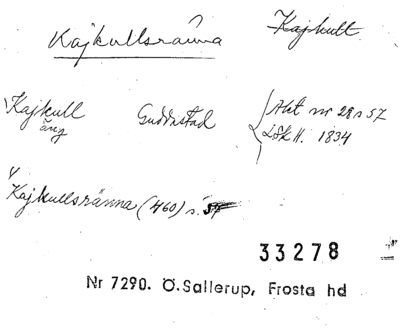 Kajkullsränna Kajkull
Kajkull Guddastad Akt nr 28 s 57
äng LSkH. 1834
Kajkullsränna (460) s. 57
33278
Nr 7290. Ö.Sallerup, Frosta hd